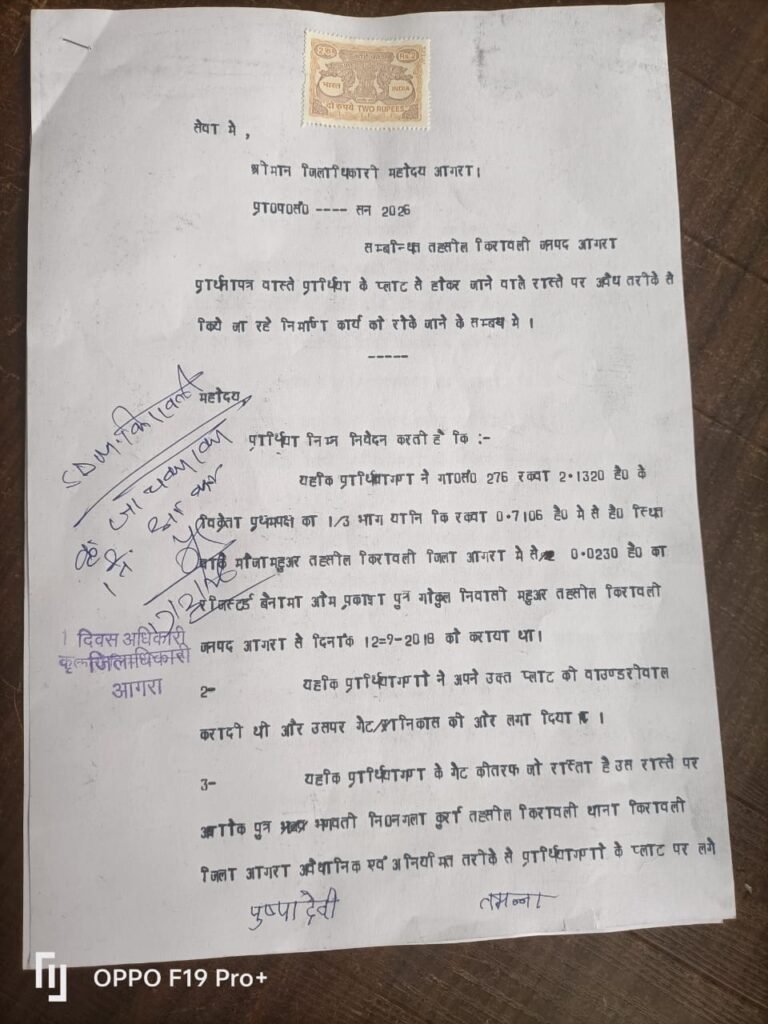 रु.2 Rs.2
भारत INDIA
दो रुपये TWO RUPEES
सेवा मे ,
श्रीमान जिलाधिकारी महोदय आगरा।
प्रा0प0सं0 ---- सन 2026
सम्बन्धित तहसील किरावली जनपद आगरा
प्रार्थनापत्र वास्ते प्रार्थिया के प्लाट से होकर जाने वाले रास्ते पर अवैध तरीके से
किये जा रहे निर्माण कार्य को रोके जाने के सम्बंध मे ।
-----
महोदय,
प्रार्थिया निम्न निवेदन करती है कि :-
यहकि प्रार्थियागण ने गा0सं0 276 रकवा 2.1320 है0 के
विक्रेता प्रथमपक्ष का 1/3 भाग यानि कि रकवा 0.7106 है0 मे से है0 स्थित
मौजा महुअर तहसील किरावली जिला आगरा मे से 0.0230 है0 का
रजिस्टर्ड बैनामा ओम प्रकाश पुत्र गोकुल निवासी महुअर तहसील किरावली
जनपद आगरा से दिनांक 12=9-2018 को कराया था।
2- यहकि प्रार्थियागणो ने अपने उक्त प्लाट की वाउण्डरीवाल
करादी थी और उसपर गेट निकास की ओर लगा दिया ।
3- यहकि प्रार्थियागण के गेट कीतरफ जो रास्ता है उस रास्ते पर
पुत्र भगवती नि0नगला कुर्रा तहसील किरावली थाना किरावली
जिला आगरा अवैधानिक एवं अनियमित तरीके से प्रार्थियागणो के प्लाट पर लगे
SDM किरावली
दिवस अधिकारी
जिलाधिकारी
आगरा
पुष्पा देवी तमन्ना
OPPO F19 Pro+